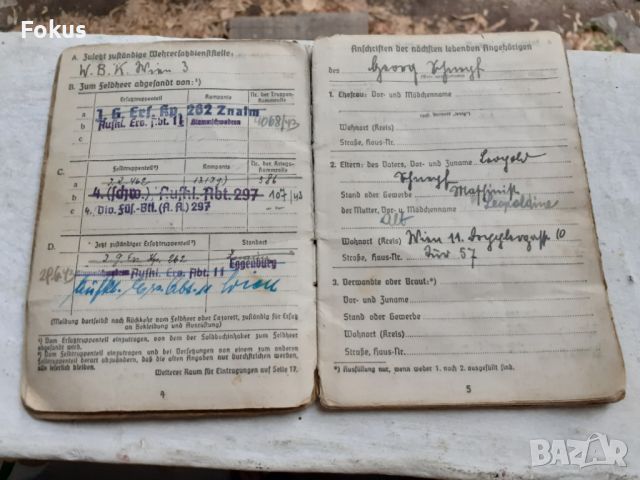 Fokus
A. Zuletzt zuständige Wehrersatzdienststelle:
W. B. K. Wien 3
B. Zum Feldheer abgesandt von:¹)
Ersatztruppenteil Kompanie Nr. der Truppenstammrolle
a 1. G. Ers. Kp. 262 Znaim
b Aufkl. Ers. Abt. 11 4068/43
c
C. Feldtruppenteil²) Kompanie Nr. der Kriegsstammrolle
a 586
b 4. (schw.) Aufkl. Abt. 297 107/43
c 4. Div. Füs.-Btl. (A. A.) 297
D. Jetzt zuständiger Ersatztruppenteil Standort
Ers. Kp. 262 Eggenburg
Aufkl. Ers. Abt. 11
Wien
(Meldung dortselbst nach Rückkehr vom Feldheer oder Lazarett, zuständig für Ersatz
an Bekleidung und Ausrüstung)
¹) Vom Ersatztruppenteil einzutragen, von dem der Soldbuchinhaber zum Feldheer
abgesandt wird.
²) Vom Feldtruppenteil einzutragen und bei Versetzungen von einem zum anderen
Feldtruppenteil derart abzuändern, daß die alten Angaben nur durchstrichen werden,
also leserlich bleiben.
Weiterer Raum für Eintragungen auf Seite 17.
4
Anschriften der nächsten lebenden Angehörigen
des Georg
1. Ehefrau: Vor- und Mädchenname
Wohnort (Kreis)
Straße, Haus-Nr.
2. Eltern: des Vaters, Vor- und Zuname Leopold
Stand oder Gewerbe Maschinist
der Mutter, Vor- u. Mädchenname Leopoldine
Alt
Wohnort (Kreis) Wien 11. 10
Straße, Haus-Nr. Tür 57
3. Verwandte oder Braut:*)
Vor- und Zuname
Stand oder Gewerbe
Wohnort (Kreis)
Straße, Haus-Nr.
*) Ausfüllung nur, wenn weder 1. noch 2. ausgefüllt sind.
5
BAZAR